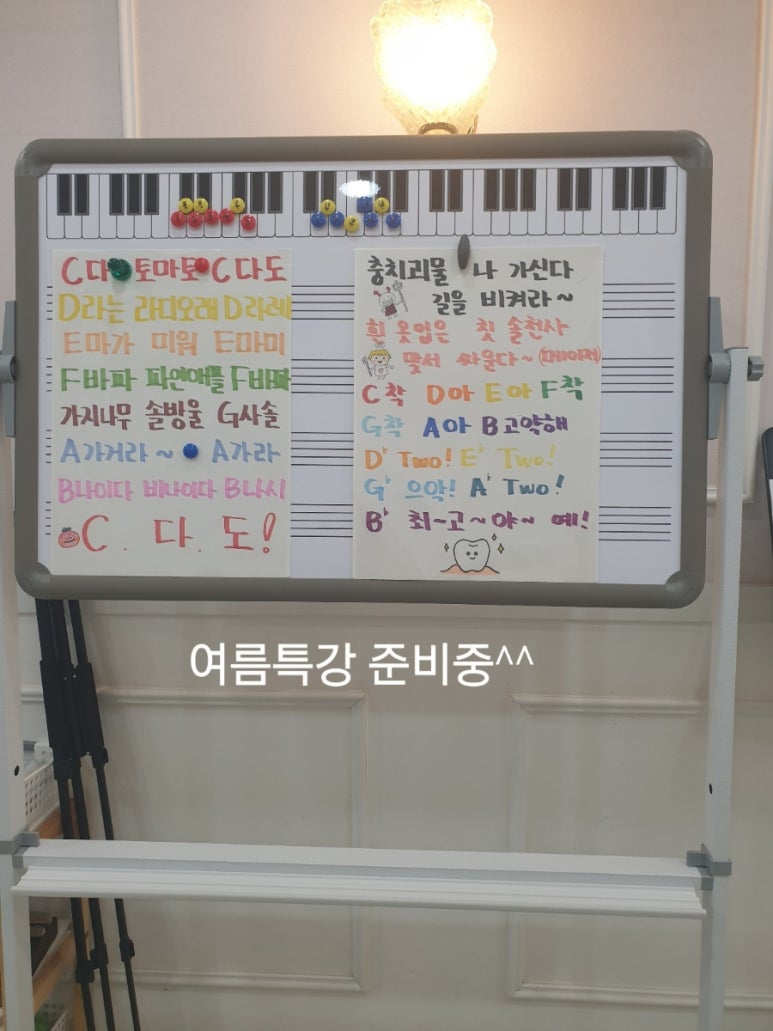 C다 토마토 C다도
D라는 라디오래 D라레
E마가 미워 E마미
F바파 파인애플 F바파
가지나무 솔방울 G사솔
A가거라~ A가라
B나이다 비나이다 B나시
C. 다. 도!
충치괴물 나 가신다
길을 비켜라~
흰 옷입은 칫솔천사
맞서 싸운다~ (메이저)
C착 D아 E아 F착
G착 A아 B고약해
D♭ Two! E♭ Two!
G♭ 으악! A♭ Two!
B♭ 최~고~야~ 예!
여름특강 준비중^^